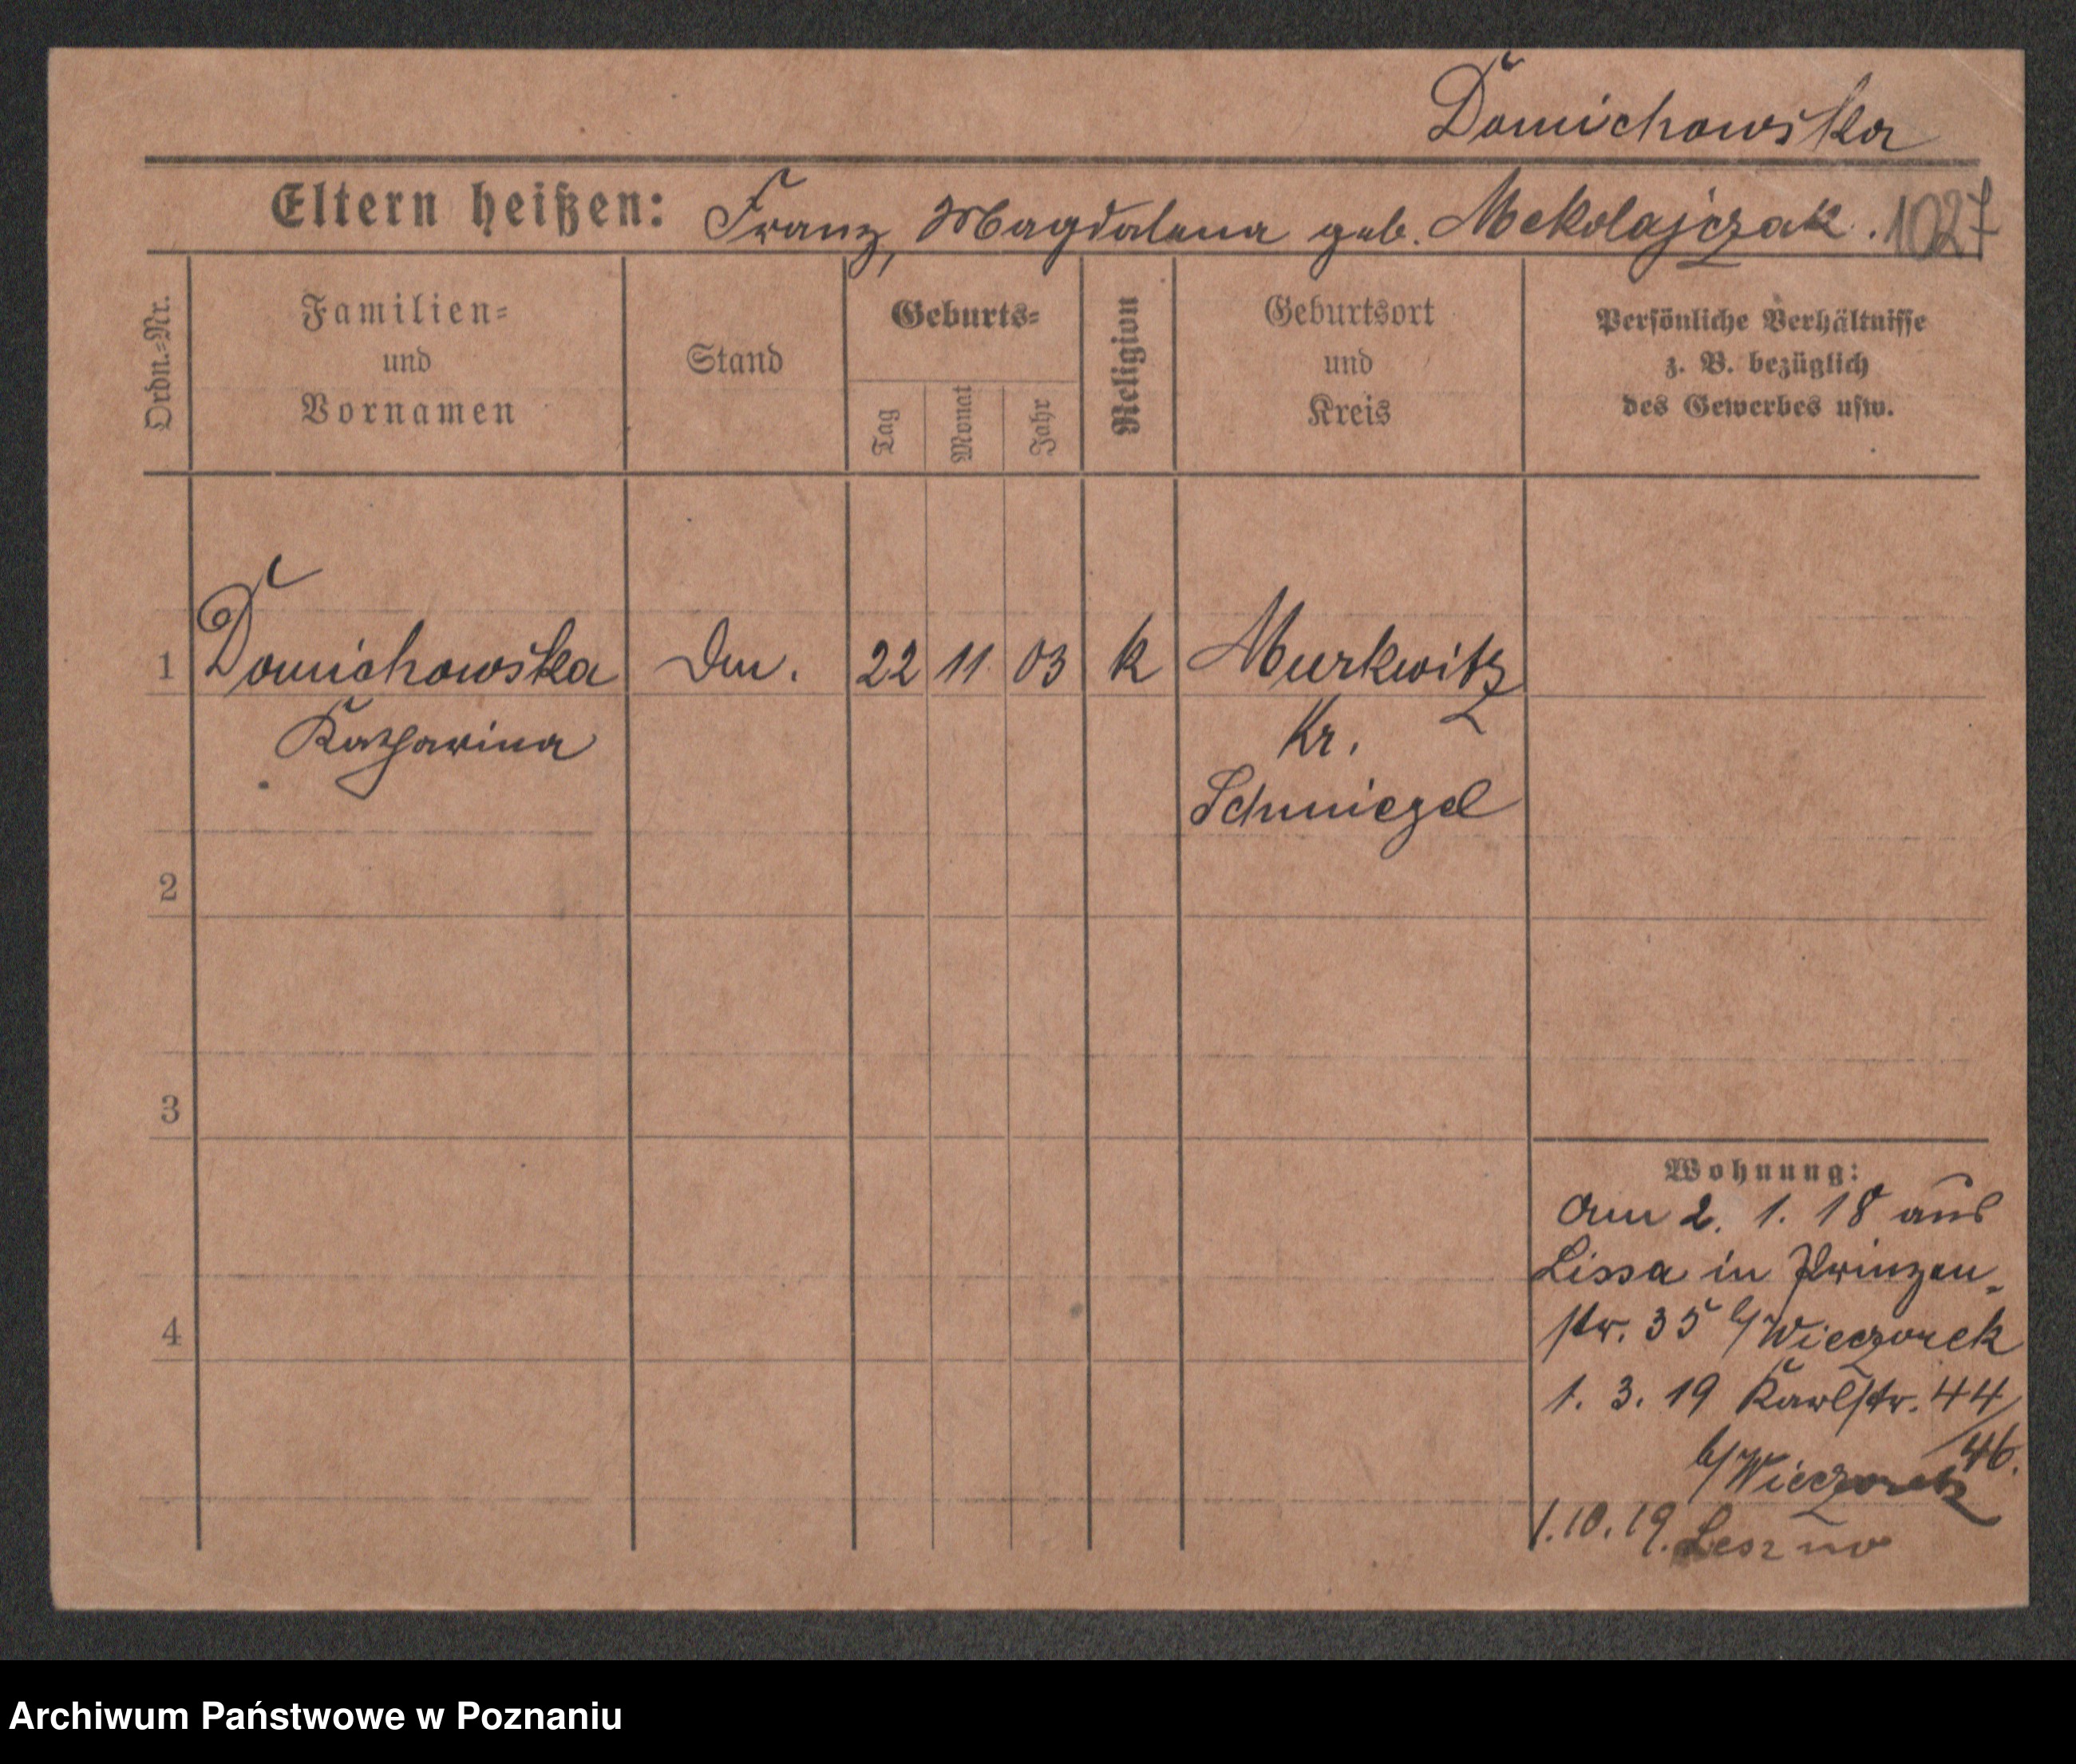 Domichowska
Eltern heißen: Franz, Magdalena geb. Mekolajczak. 1027
Ordn.=Nr.
Familien=
und
Vornamen
Stand
Geburts=
Tag
Monat
Jahr
Religion
Geburtsort
und
Kreis
Persönliche Verhältnisse
z. B. bezüglich
des Gewerbes usw.
1 Domichowska 22 11 03 k Murkwitz
Katharina Kr.
Schmiegel
2
3
4
Wohnung:
Am 2. 1. 18 aus
Lissa in Prinzen-
str. 35 b/Wieczorek
1. 3. 19 Karlstr. 44/
46.
b/Wieczorek
1.10.19. Leszno
Archiwum Państwowe w Poznaniu